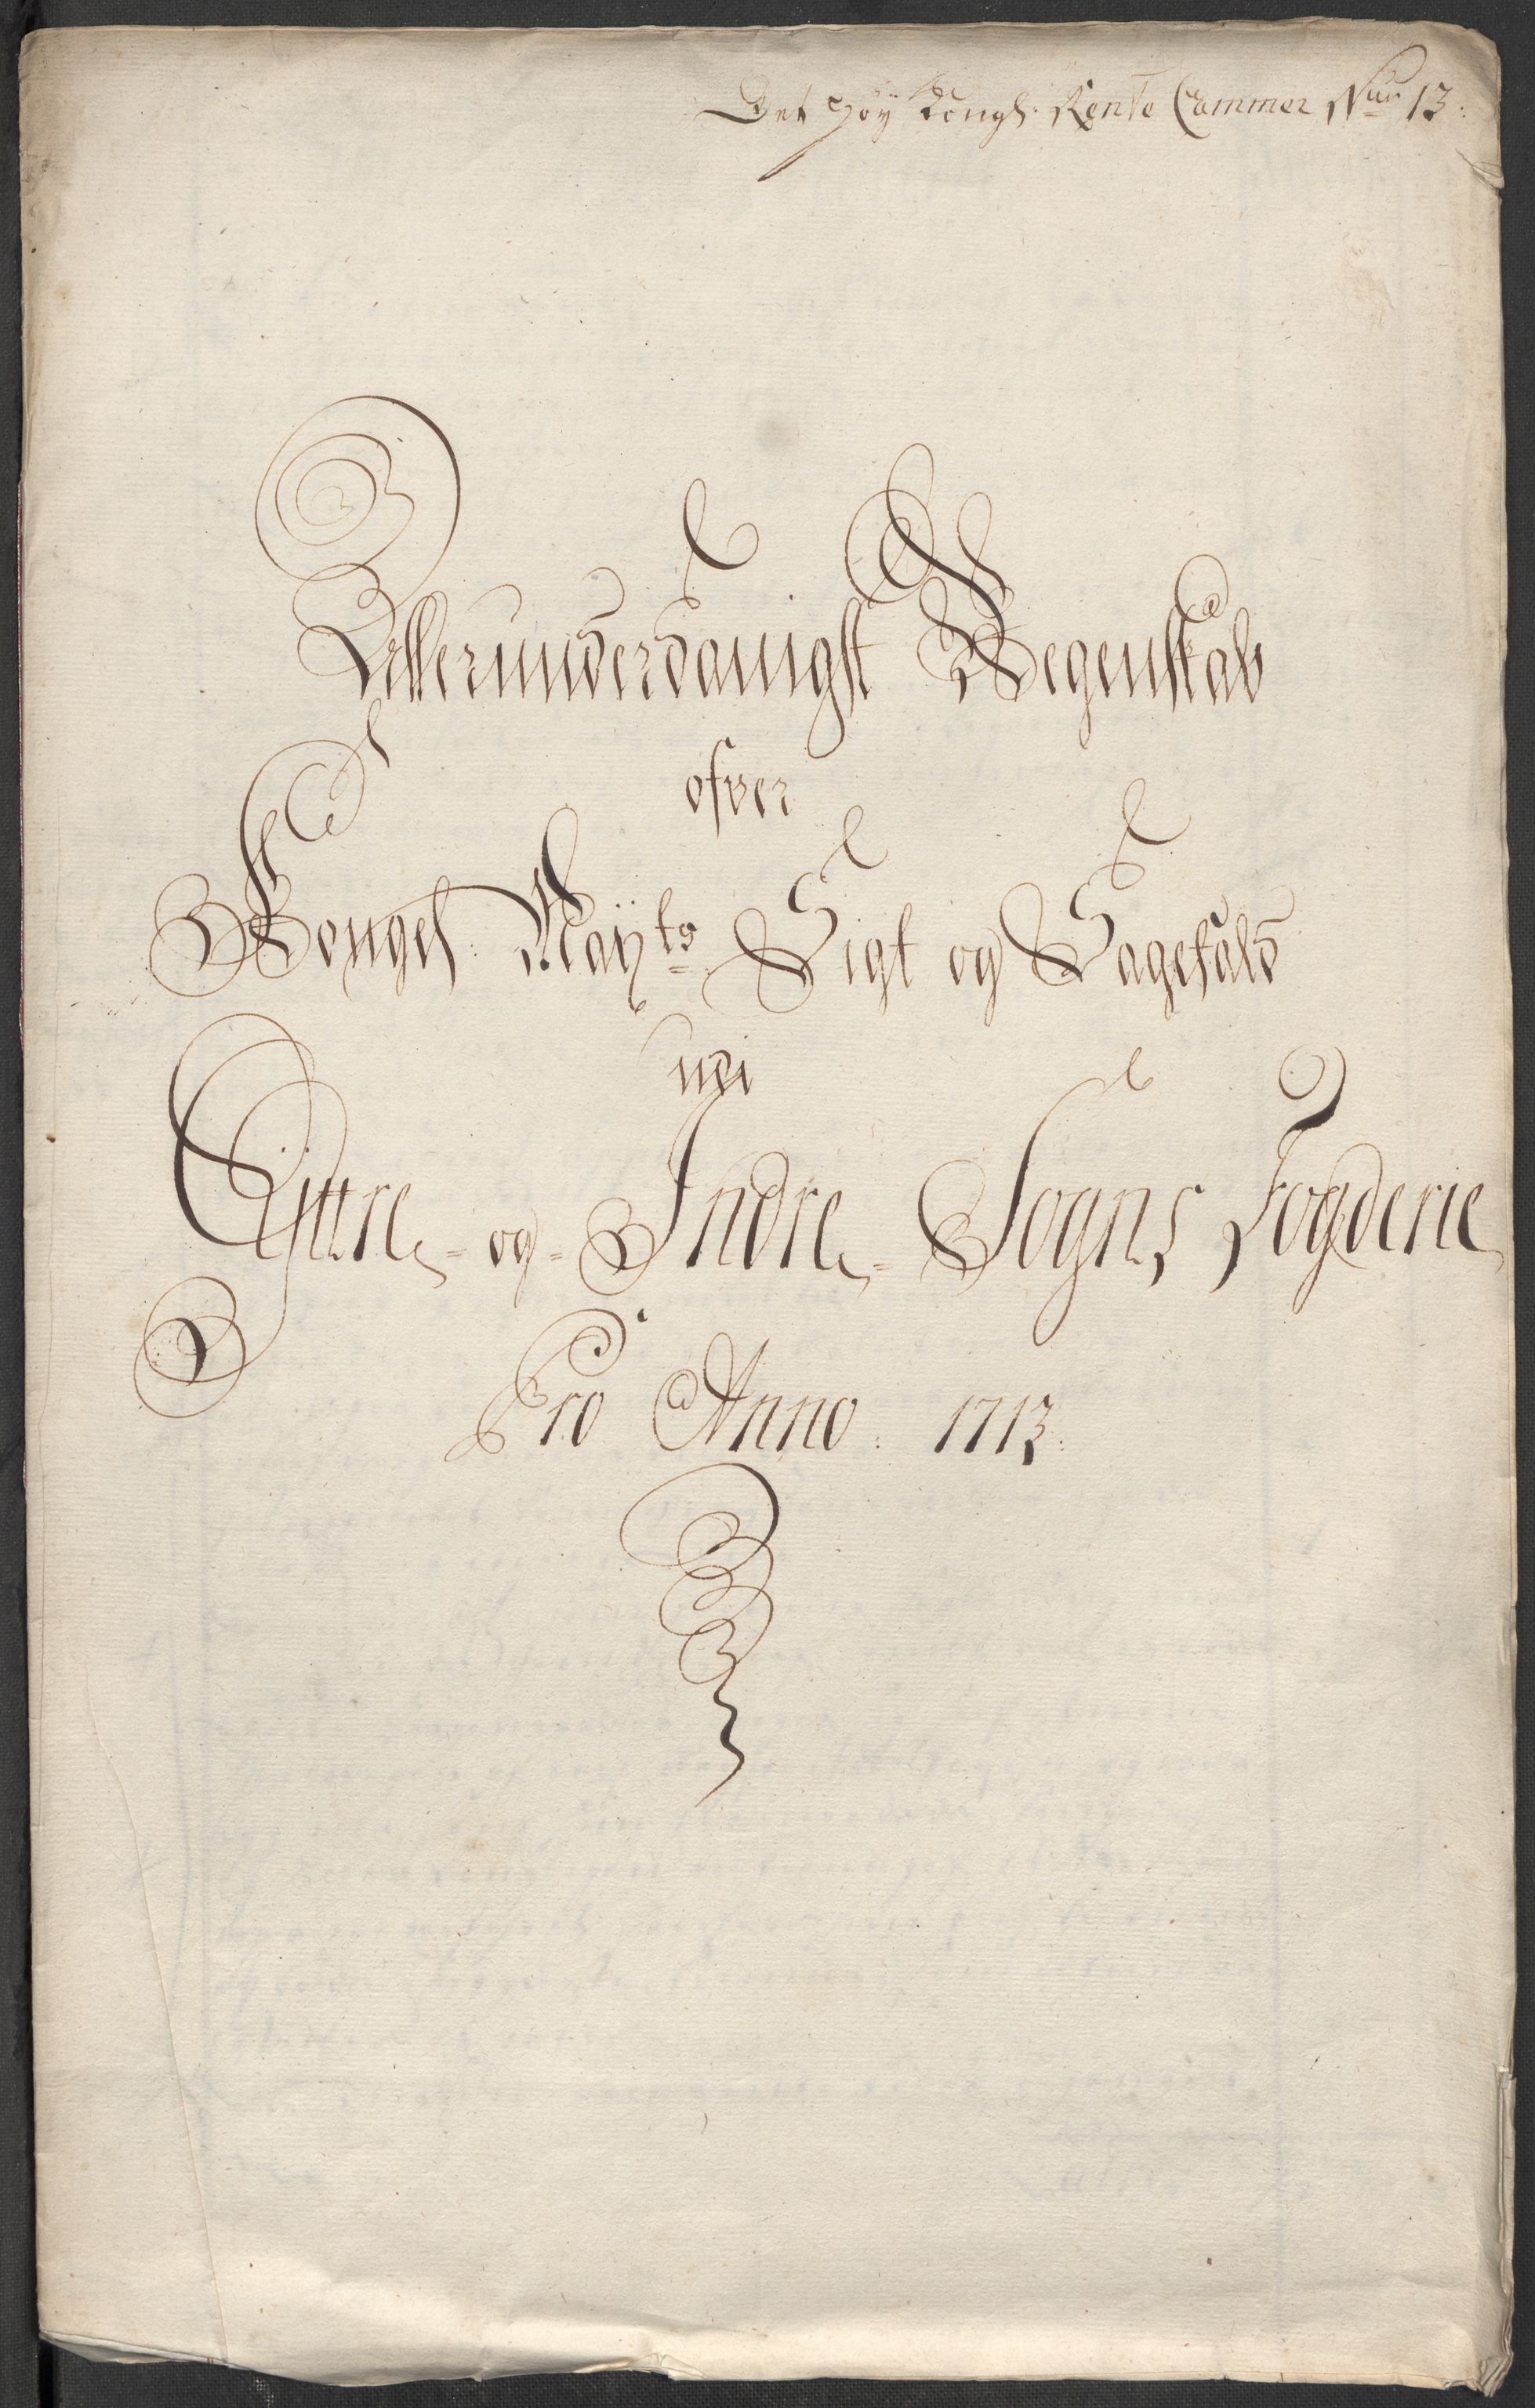 Det Høy Kongl. Rente Cammer Num 13.
Allerunderdanigst Regenskab
ofver
Kongel: Mayts Sigt og Sagefald
udi
Yttre- og- Indre- Sogns Fogderie
Pro Anno: 1713.